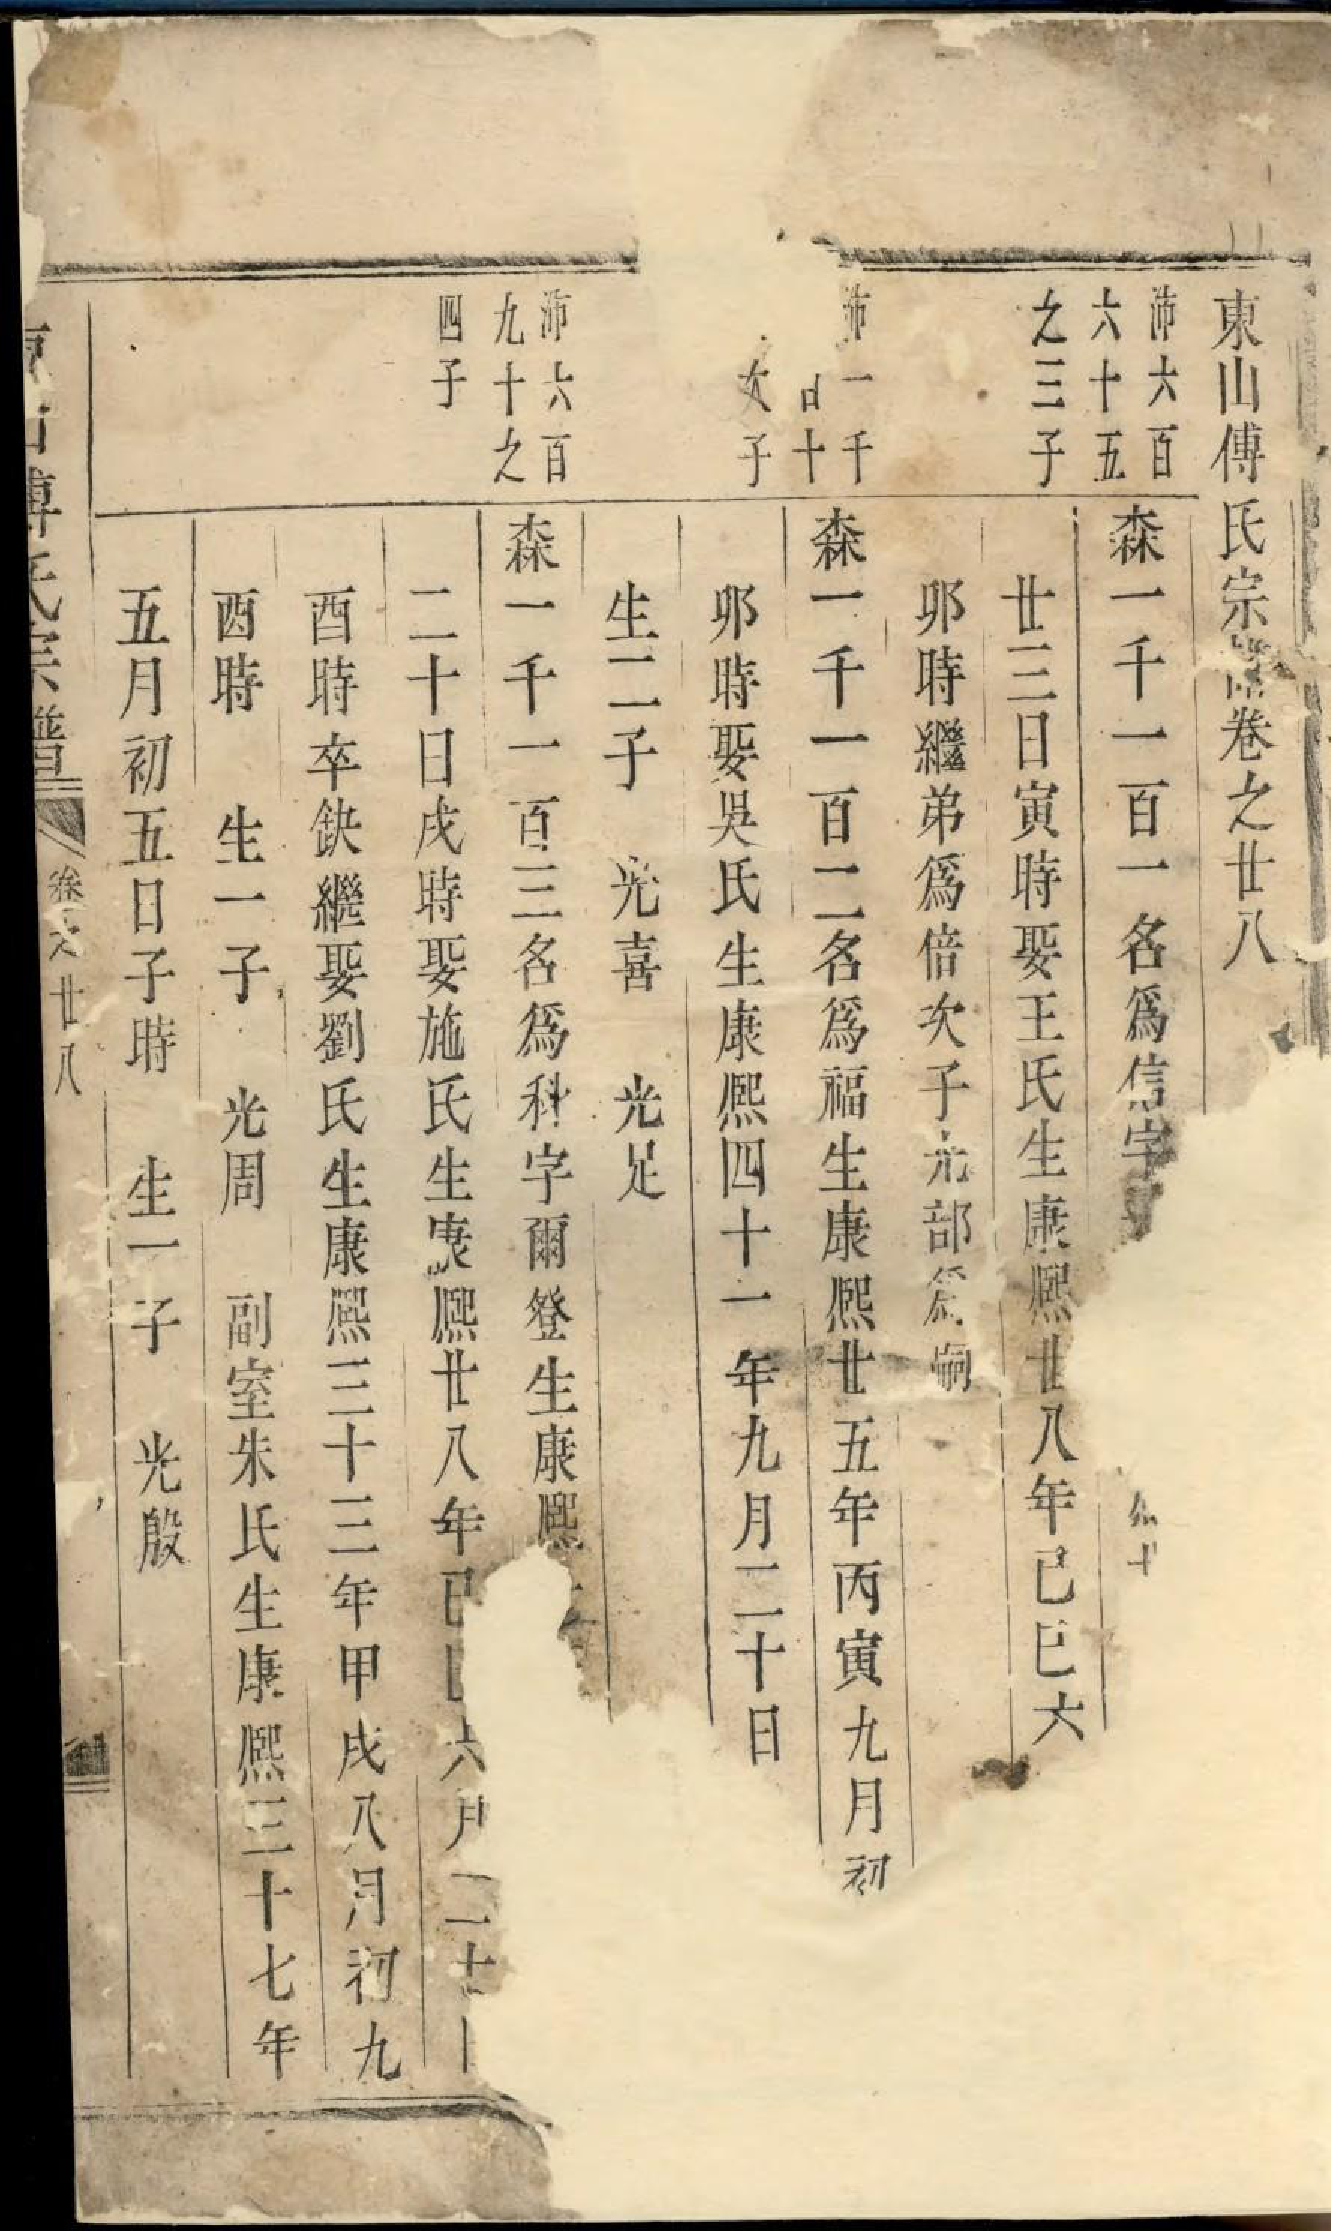 東山傅氏宗譜卷之廿八
沛六百
六十五
之三子
森一千一百一名爲信字
廿三日寅時娶王氏生康熙廿八年己巳六
卯時繼弟爲倍次子光部爲嗣
沛一千
十
子
森一千一百二名爲福生康熙廿五年丙寅九月初
卯時娶吳氏生康熙四十一年九月二十日
生二子 光喜 光足
沛六百
九十之
四子
森一千一百三名爲科字爾登生康熙
二十日戌時娶施氏生康熙廿八年己巳六月二十
酉時卒缺繼娶劉氏生康熙三十三年甲戌八月初九
酉時 生一子 光周 副室朱氏生康熙三十七年
五月初五日子時 生一子 光殷
東山傅氏宗譜 卷之廿八